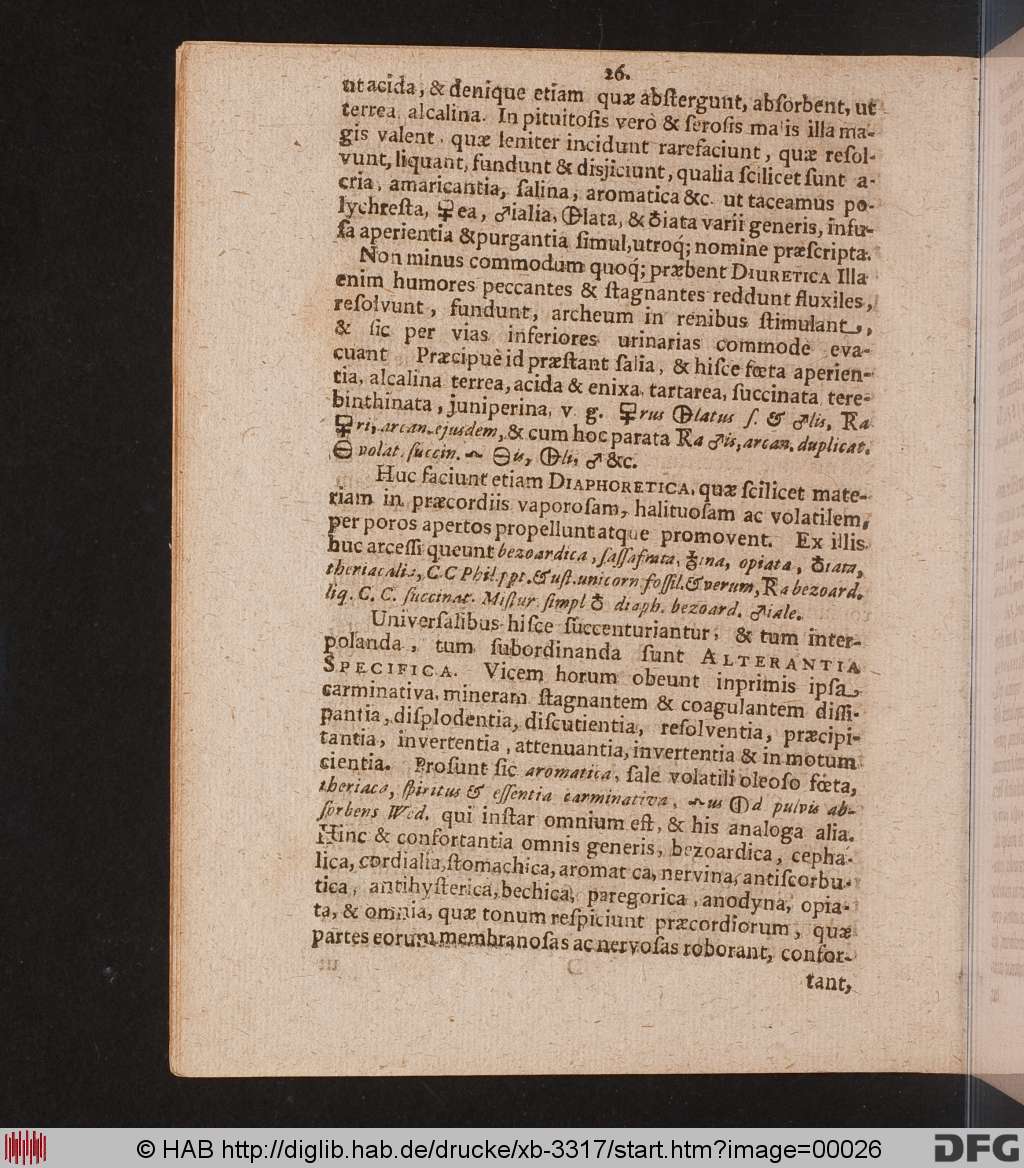 26.
ut acida, & denique etiam quæ abſtergunt, abſorbent, ut
terrea alcalina. In pituitoſis verò & ſeroſis ma is illa ma-
gis valent, quæ leniter incidunt rarefaciunt, quæ reſol-
vunt, liquant, fundunt & disjiciunt, qualia ſcilicet ſunt a-
cria, amaricantia, ſalina, aromatica &c. ut taceamus po-
lychreſta, 🜿ea, ♂ialia, 🜕lata, & ♁iata varii generis, infu-
ſa aperientia & purgantia ſimul, utroq; nomine præſcripta.
Non minus commodum quoq; præbent DIURETICA Illa
enim humores peccantes & ſtagnantes reddunt fluxiles,
reſolvunt, fundunt, archeum in renibus ſtimulant,
& ſic per vias inferiores urinarias commodè eva-
cuant Præcipuè id præſtant ſalia, & hiſce fœta aperien-
tia, alcalina terrea, acida & enixa, tartarea, ſuccinata tere-
binthinata, juniperina, v. g. 🜿rus 🜕latus ſ. & ♂lis, Ra
🜿ri, arcan. ejusdem, & cum hoc parata Ra ♂is, arcan. duplicat.
🜔 volat. ſuccin. 🜔is, 🜕li, ♂ &c.
Huc faciunt etiam DIAPHORETICA, quæ ſcilicet mate-
riam in præcordiis vaporoſam, halituoſam ac volatilem,
per poros apertos propellunt atque promovent. Ex illis
huc arceſſi queunt bezoardica, ſaſſafrata, ina, opiata, ♁iata,
theriacalia, C. C Phil. ppt. & uſt. unicorn foſſil. & verum, Ra bezoard.
liq. C. C. ſuccinat. Miſtur ſimpl ♁ diaph. bezoard. ♂iale.
Univerſalibus hiſce ſuccenturiantur, & tum inter-
polanda, tum ſubordinanda ſunt ALTERANTIA
SPECIFICA. Vicem horum obeunt inprimis ipſa
carminativa, mineram ſtagnantem & coagulantem diſſi-
pantia, diſplodentia, diſcutientia, reſolventia, præcipi-
tantia, invertentia, attenuantia, invertentia & in motum
cientia. Proſunt ſic aromatica, ſale volatili oleoſo fœta,
theriaca, ſpiritus & eſſentia carminativa, us 🜕d pulvis ab-
ſorbens Wed. qui inſtar omnium eſt, & his analoga alia.
Hinc & confortantia omnis generis, bezoardica, cepha-
lica, cordialia, ſtomachica, aromat ca, nervina, antiſcorbu-
tica, antihyſterica, bechica, paregorica, anodyna, opia-
ta, & omnia, quæ tonum reſpiciunt præcordiorum, quæ
partes eorum membranoſas ac nervoſas roborant, confor-
tant,
© HAB http://diglib.hab.de/drucke/xb-3317/start.htm?image=00026
DFG